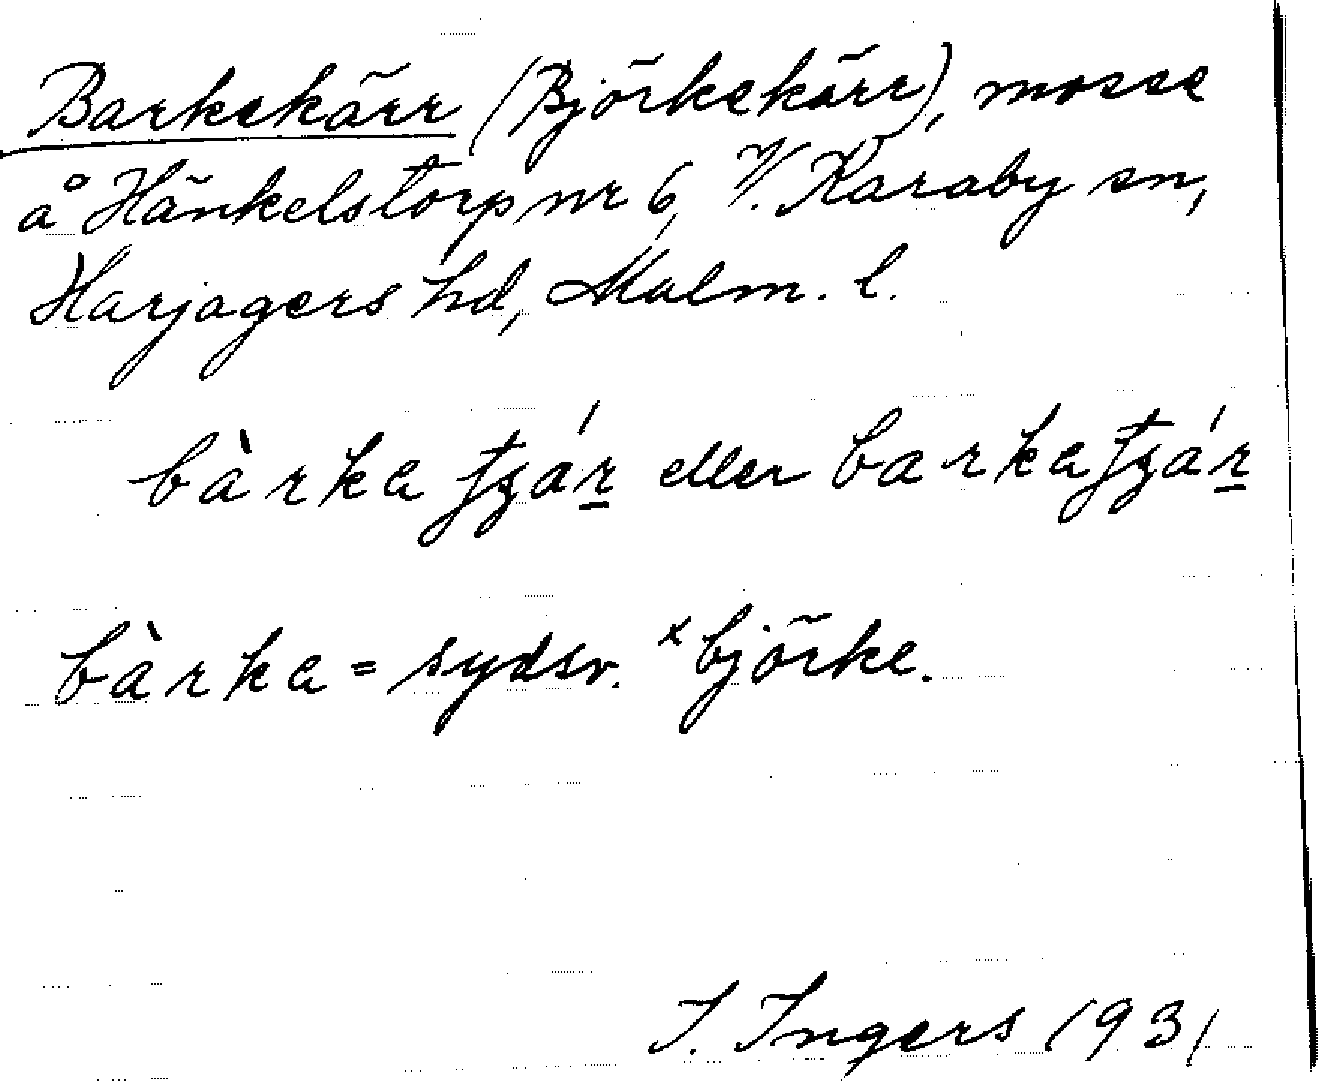 Barkekärr (Björkekärr), mosse
å Hänkelstorp nr 6, V. Karaby sn,
Harjagers hd, Malm. l.
bàrka tʒár eller barkatʒár
bàrka = sydsv. ˣbjörke.
I. Ingers 1931